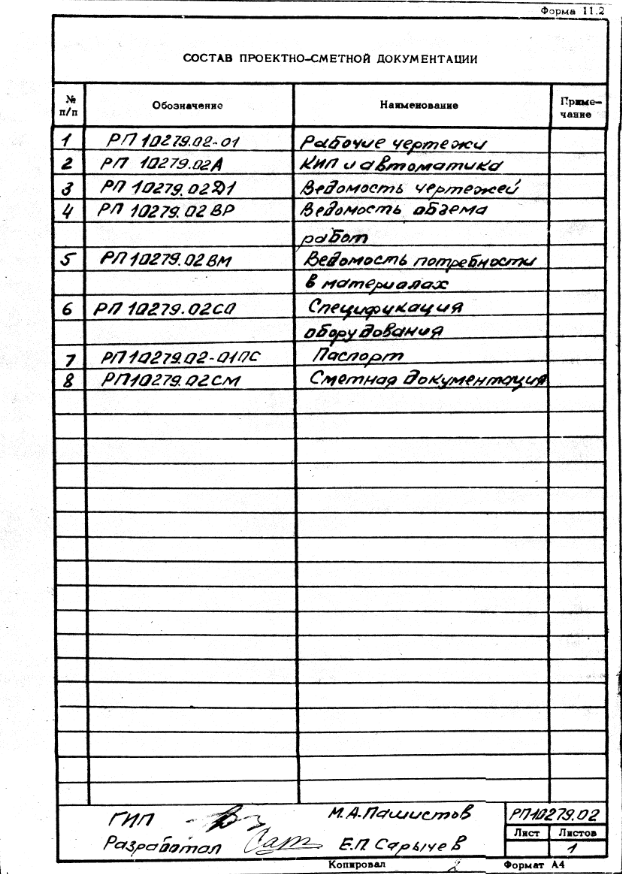 Форма 11.2
СОСТАВ ПРОЕКТНО-СМЕТНОЙ ДОКУМЕНТАЦИИ
№ п/п Обозначение Наименование Приме-
чание
1 РП 10279.02-01 Рабочие чертежи
2 РП 10279.02А КИП и автоматика
3 РП 10279.02Д1 Ведомость чертежей
4 РП 10279.02 ВР Ведомость объема
работ
5 РП 10279.02 ВМ Ведомость потребности
в материалах
6 РП 10279.02СО Спецификация
оборудования
7 РП10279.02-01ПС Паспорт
8 РП10279.02СМ Сметная документация
ГИП М.А.Пашистов РП10279.02
Разработал Е.П Сарычев Лист Листов
1
Копировал 2 Формат А4